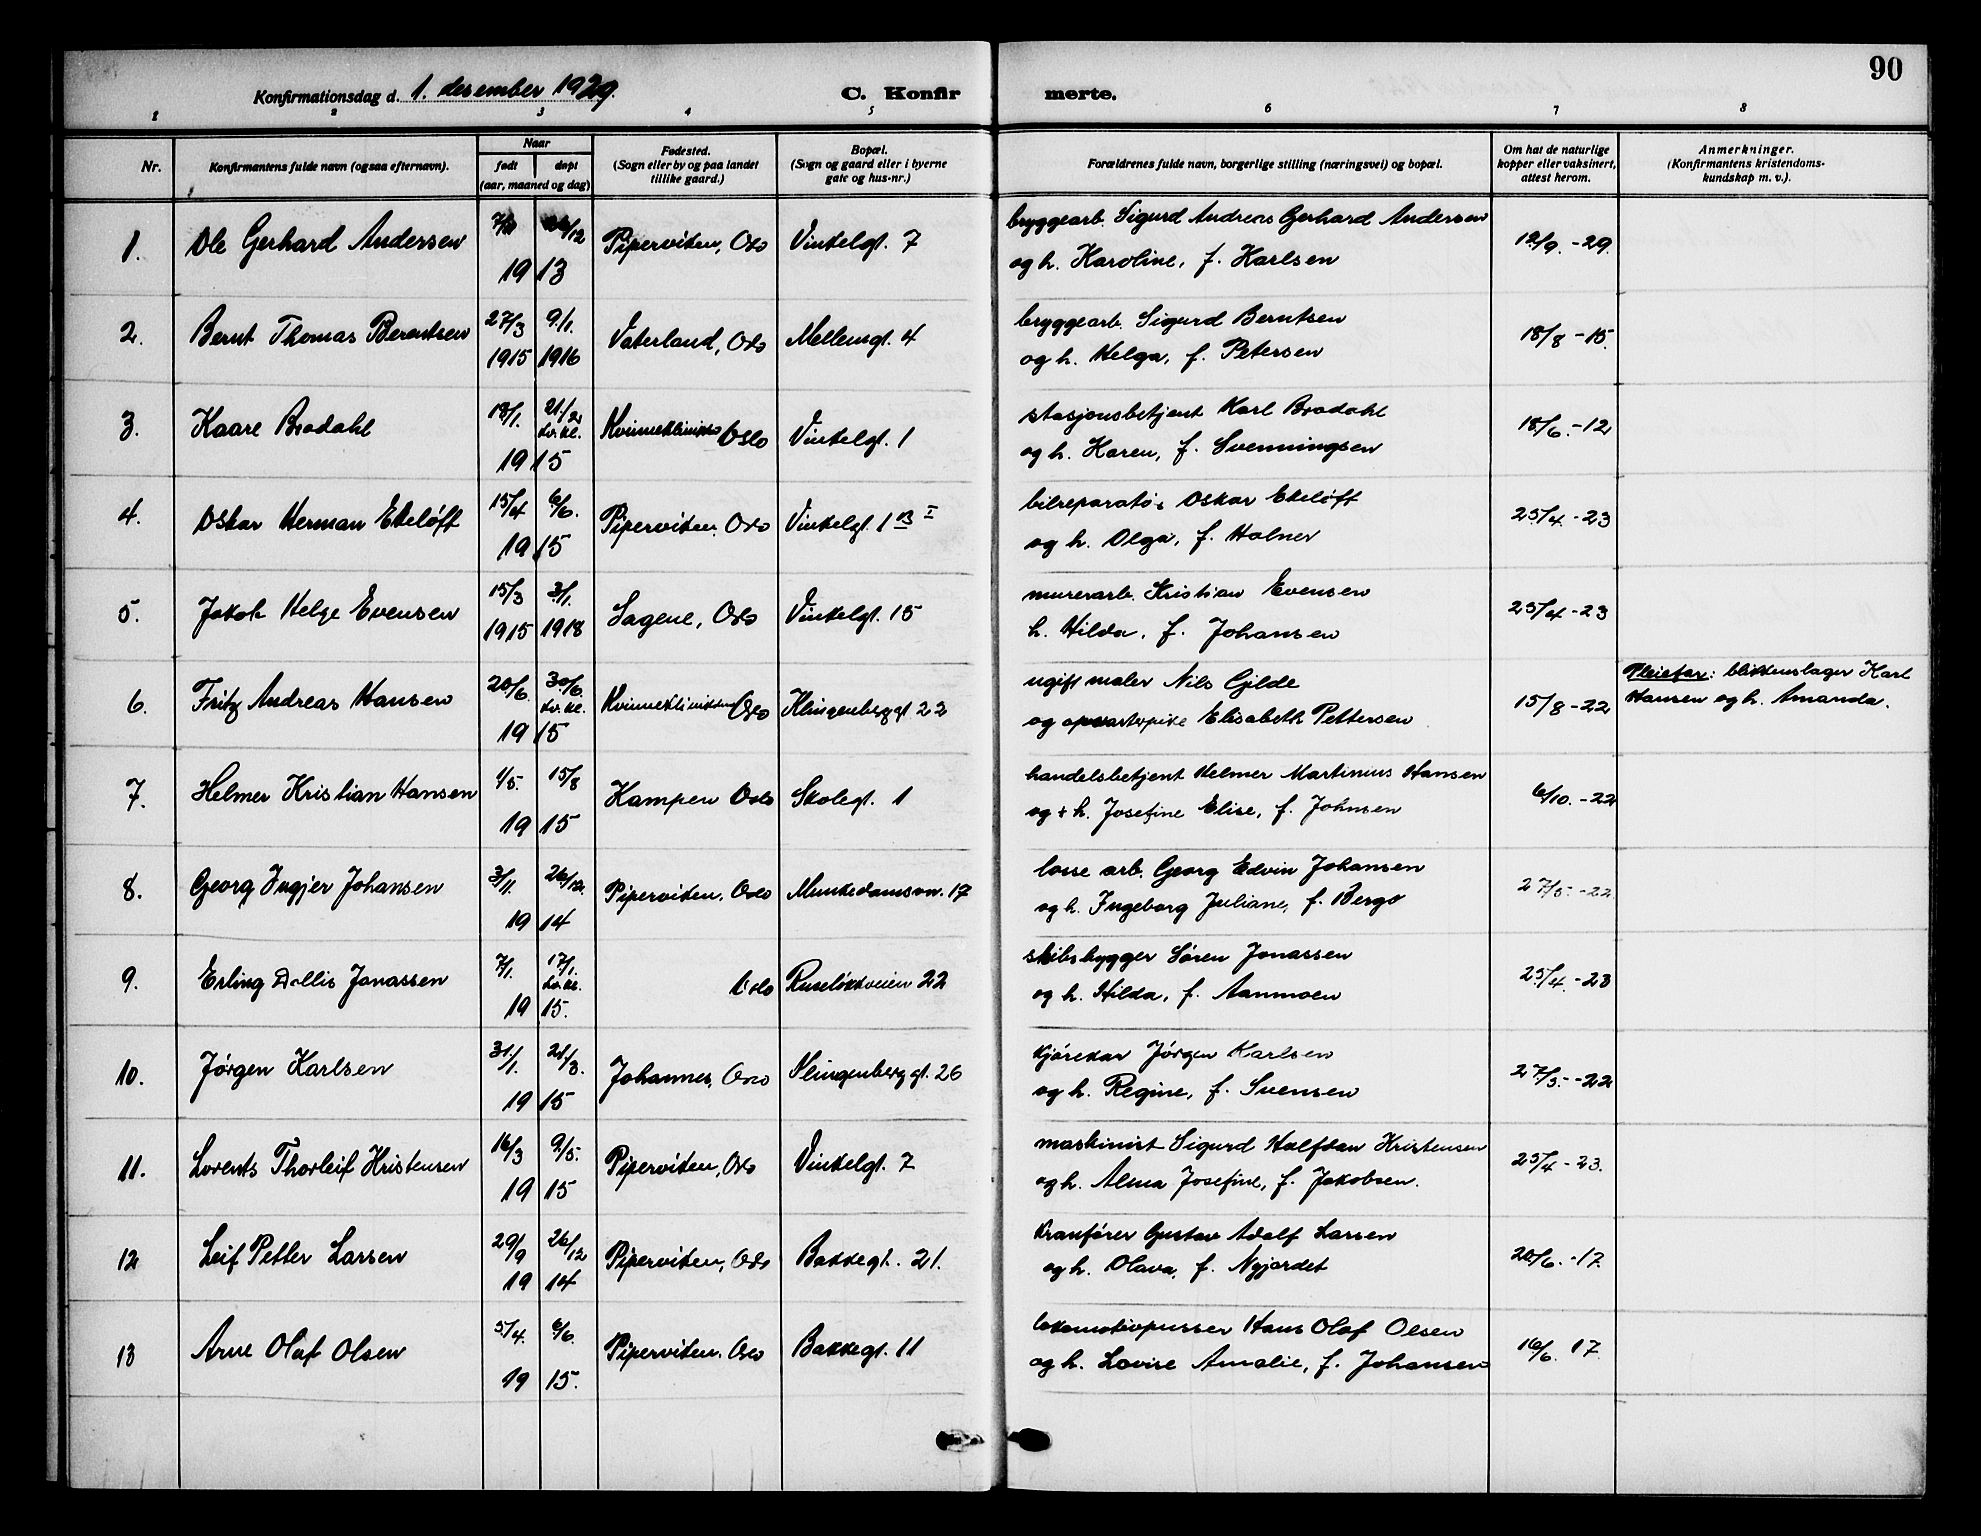 90
Konfirmationsdag d. 1. desember 1929.
C. Konfir merte.
1 2 3 4 5 6 7 8
Nr.
Konfirmantens fulde navn (ogsaa efternavn).
Naar
født døpt
(aar, maaned og dag)
Fødested.
(Sogn eller by og paa landet
tillike gaard.)
Bopæl.
(Sogn og gaard eller i byerne
gate og hus-nr.)
Forældrenes fulde navn, borgerlige stilling (næringsvei) og bopæl.
Om hat de naturlige
kopper eller vaksinert,
attest herom.
Anmerkninger.
(Konfirmantens kristendoms-
kundskap m. v.).
bryggearb. Sigurd Andreas Gerhard Andersen
1. Ole Gerhard Andersen 26/12 Piperviken, Oslo Vinkelgt. 7 12/9. -29.
19 13 og h. Karoline, f. Karlsen
27/3 9/1. bryggearb. Sigurd Berntsen
2. Bernt Thomas Berntsen Vaterland, Oslo Mellemgt. 4 18/8 -15.
1915 1916 og h. Helga, f. Petersen
18/1. 21/2 stasjonsbetjent Karl Brodahl
3. Kaare Brodahl kv.kl. Kvinneklinikken Oslo Vinkelgt. 1 18/6. -12
19 15 og h. Karen, f. Svenningsen
15/4 6/6. bilreparatør Oskar Ekeløff
4. Oskar Herman Ekeløff Piperviken, Oslo Vinkelgt. 1 B I 25/4. -23
19 15 og h. Olga, f. Holner
15/3 3/1. murerarb. Kristian Evensen
5. Jakob Helge Evensen Sagene, Oslo Vinkelgt. 15 25/4 -23
1915 1918 h. Hilda, f. Johansen
20/6. 30/6. ugift maler Nils Gjlde Pleiefar: blikkenslager Karl
6. Fritz Andreas Hansen kv. kl. Kvinneklinikken Oslo Klingenberggt. 22 15/8 -22 Hansen og h. Amanda.
19 15 og opvartepike Elisabeth Pettersen
1/5. 15/8 handelsbetjent Helmer Martinius Hansen
7. Helmer Kristian Hansen Kampen Oslo Skolegt. 1 6/10. -22
19 15 og h. Josefine Elise, f. Johnsen
3/11. 26/12. losse arb. Georg Edvin Johansen
8. Georg Ingjer Johansen Piperviken, Oslo Munkedamsvn. 17 27/5. -22
19 14 og h. Ingeborg Juliane, f. Bergo
7/1. 17/1. skibsbygger Søren Jonassen
9. Erling Dollis Jonassen kv. kl. Oslo Ruseløkveien 22 25/4. -23
19 15. og h. Hilda, f. Aanmoen
31/1. 21/3. kjørekar Jørgen Karlsen
10. Jørgen Karlsen Johannes, Oslo Klingenberggt. 26 27/3. -22
19 15 og h. Regine, f. Svensen
16/3 9/5. maskinist Sigurd Halfdan Kristensen
11. Lorents Thorleif Kristensen Piperviken, Oslo Vinkelgt. 7 25/4 -23.
19 15 og h. Alma Josefine, f. Jakobsen.
29/9 26/12 kranfører Gustav Adolf Larsen
12 Leif Petter Larsen Piperviken, Oslo Bakkegt. 21. 20/6. -17.
19 14 og h. Olava, f. Nyjordet
5/4. 6/6. lokomotivpusser Hans Olaf Olsen
13 Arne Olaf Olsen Piperviken. Oslo Bakkegt. 11 16/6. 17.
19 15. og h. Lovise Amalie, f. Johansen